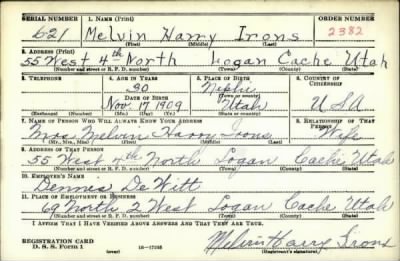 SERIAL NUMBER 1. NAME (Print) ORDER NUMBER
621 Melvin Harry Irons 2382
(First) (Middle) (Last)
2. ADDRESS (Print)
55 West 4th North Logan Cache Utah
(Number and street or R. F. D. number) (Town) (County) (State)
3. TELEPHONE 4. AGE IN YEARS 5. PLACE OF BIRTH 6. COUNTRY OF CITIZENSHIP
30 Nephi
DATE OF BIRTH (Town or county)
Nov 17 1909 Utah USA
(Exchange) (Number) (Mo.) (Day) (Yr.) (State or country)
7. NAME OF PERSON WHO WILL ALWAYS KNOW YOUR ADDRESS 8. RELATIONSHIP OF THAT PERSON
Mrs. Melvin Harry Irons Wife
(Mr., Mrs., Miss) (First) (Middle) (Last)
9. ADDRESS OF THAT PERSON
55 West 4th North Logan Cache Utah
(Number and street or R. F. D. number) (Town) (County) (State)
10. EMPLOYER'S NAME
Dennis De Witt
11. PLACE OF EMPLOYMENT OR BUSINESS
69 North 2 West Logan Cache Utah
(Number and street or R. F. D. number) (Town) (County) (State)
I AFFIRM THAT I HAVE VERIFIED ABOVE ANSWERS AND THAT THEY ARE TRUE.
REGISTRATION CARD
D. S. S. FORM 1 16-17105 Melvin Harry Irons
(Registrant's signature)